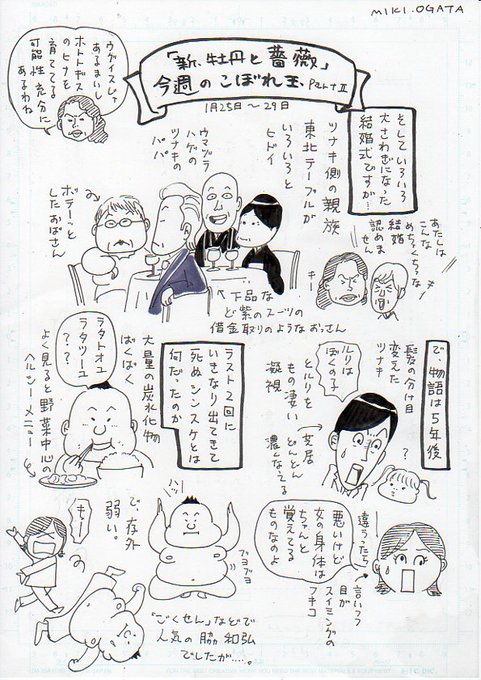 MIKI.OGATA
「新、牡丹と薔薇」
今週のこぼれ玉、Part II
1月25日〜29日
ウグイスじゃ
あるまいし
ホトトギス
のヒナを
育ててる
可能性充分に
あるわね
そしていろいろ
大さわぎになった
結婚式ですが…
ツナキ側の親族
東北テーブルが
いろいろと
ヒドイ
ウマヅラ
ハゲの
ツナキの
パパ
ボテーっと
したおばさん
↑下品な
ど紫のスーツの
借金取りのようなおっさん
あたしは
こんな
めちゃくちゃな
結婚
認めま
せん
キー
で、物語は5年後
髪の分け目
変えた
ツナキ
ルリは
ぼくの子
とルリを
もの凄い
凝視
芝居
どんどん
濃くなってる
?
違ったら
悪いけど
女の身体は
ちゃんと
覚えてる
ものなのよ
言いつつ
目が
スイミングの
フキコ
ラスト2回に
いきなり出てきて
死ぬシンスケとは
何だったのか
ラタトオユ
ラタツーユ
??
大量の炭水化物
ばくばく
よく見ると野菜中心の
ヘルシーメニュー
ハッ
ブヨブヨ
で、存外
弱い。
もー
「ごくせん」などで
人気の脇 知弘
でしたが……。